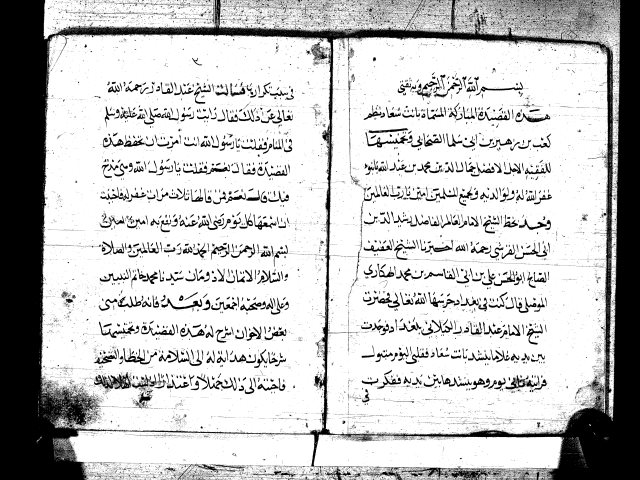 بسم الله الرحمن الرحيم وبه ثقتي
هذه القصيدة المباركة المسماة بانت سعاد نظم
كعب بن زهير بن ابي سلما الصحابي وتخميسها
للفقيه الاجل الافضل جمال الدين محمد بن عبد الله
غفر الله له ولوالديه ولجميع المسلمين امين يا رب العالمين
وجد بخط الشيخ الامام العالم الفاضل رشيد الدين
ابي الحسن القرشي رحمه الله اخبرنا الشيخ العفيف
ابو الحسن علي بن ابي القاسم بن محمد الهكاري
الموصلي قال كنت في بغداد حرسها الله تعالى في حضرت
الشيخ الامام عبد القادر الجيلاني ببغداد فوجدت
بين يديه غلاما ينشد بانت سعاد فقلبي اليوم متبول
يوم وهو ينشدها بين يديه ففكرت
في
في سبب تكرارها فسالت الشيخ عبد القادر رحمه الله
تعالى عن ذلك فقال رايت رسول الله صلى الله عليه وسلم
في المنام فقلت يا رسول الله انت امرت ان يحفظ هذه
القصيدة فقال نعم فقلت يا رسول الله وسي مدح
فيك قال نعم قالها ثلاث مرات غفر له فاحببت
ان اسمعها كل يوم رضي الله عنه ونفع به امين امين
بسم الله الرحمن الرحيم الحمد لله رب العالمين والصلاة
والسلام على سيدنا محمد خاتم النبيين
وعلى اله وصحبه اجمعين وبعد فانه طلب مني
بعض الاخوان اشرح له هذه القصيدة وتخميسها
شرحا يكون هداية له الى السلامة من الخطا والتصحيف
فاجبته الى ذلك